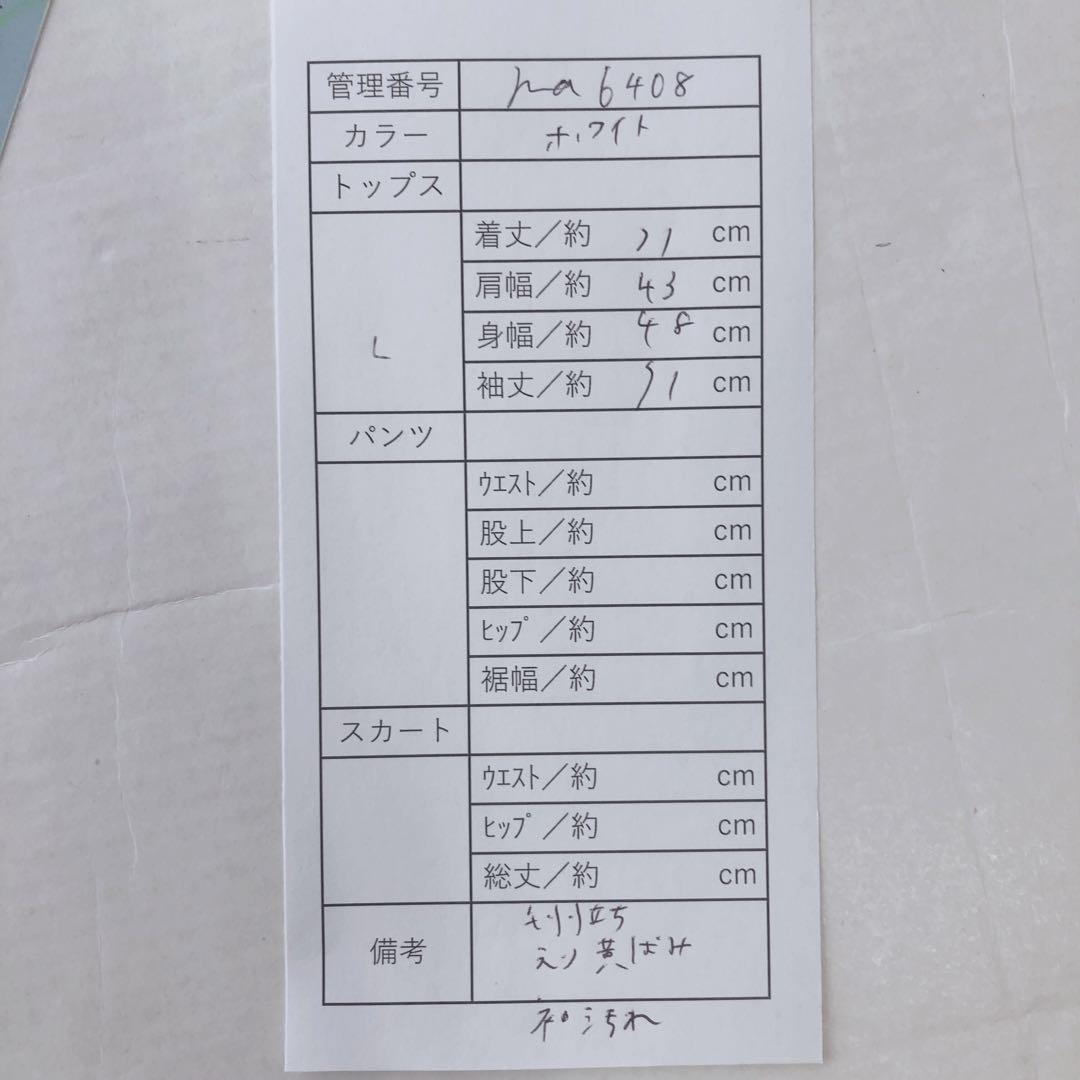 管理番号 ha6408
カラー ホワイト
トップス
L
着丈／約 71 cm
肩幅／約 43 cm
身幅／約 48 cm
袖丈／約 cm
パンツ
ｳｴｽﾄ／約 cm
股上／約 cm
股下／約 cm
ﾋｯﾌﾟ／約 cm
裾幅／約 cm
スカート
ｳｴｽﾄ／約 cm
ﾋｯﾌﾟ／約 cm
総丈／約 cm
備考
毛羽立ち
えり黄ばみ
袖汚れ